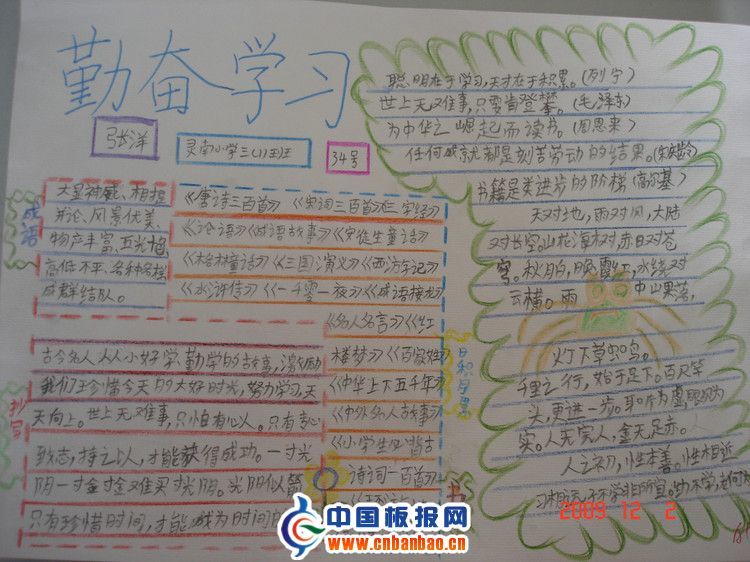 勤奋学习
张洋
灵南小学三(1)班
34号
成语
大显神威、相提
并论、风景优美、
物产丰富、五光十色
高低不平、各种各样
成群结队。
《唐诗三百首》《宋词三百首》《三字经》
《论语》《成语故事》《安徒生童话》
《格林童话》《三国演义》《西游记》
《水浒传》《一千零一夜》《成语接龙》
《名人名言》《红
楼梦》《百家姓》
《中华上下五千年》
《中外名人故事》
《小学生必背古
诗词一百首》
日积月累
书
抄写
古今名人从小好学、勤学的故事,激励
我们珍惜今天的大好时光,努力学习,天
天向上。世上无难事,只怕有心人。只有专心
致志,持之以,才能获得成功。一寸光
阴一寸金寸金难买寸光阴。光阴似箭
只有珍惜时间,才能成为时间
聪明在于学习,天才在于积累。(列宁)
世上无难事,只要肯登攀。(毛泽东)
为中华之崛起而读书。(周恩来)
任何成就都是刻苦劳动的结果。(宋庆龄)
书籍是类进步的阶梯(高尔基)
天对地,雨对风,大陆
对长空。山花海树,赤日对苍
穹。秋月白,晚霞红,水绕对
云横。雨中山果落,
灯下草虫鸣。
千里之行,始于足下。百尺竿
头,更进一步。耳听为虚,眼见为
实。人无完人,金无足赤。
人之初,性本善。性相近
习相远,子不学非所宜。幼不学,老何为
2009 12 2
中国板报网
www.cnbanbao.cn